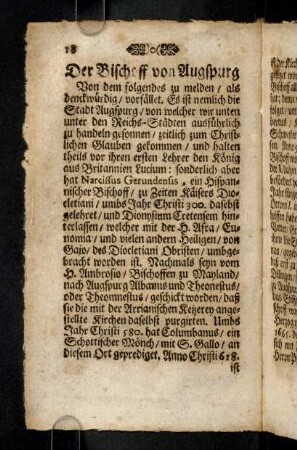 18
Der Bischoff von Augspurg
Von dem folgendes zu melden / als
denckwürdig / vorfället. Es ist nemlich die
Stadt Augspurg / von welcher wir unten
unter den Reichs-Städten ausführlich
zu handeln gesonnen / zeitlich zum Christ-
lichen Glauben gekommen / und halten
theils vor ihren ersten Lehrer den König
aus Britannien Lucium: sonderlich aber
hat Narcissus Gerundensis, ein Hispani-
scher Bischoff / zu Zeiten Käisers Dio-
cletiani / umbs Jahr Christi 300. daselbst
gelehret / und Dionysium Cretensem hin-
terlassen / welcher mit der H. Afra / Eu-
nomia / und vielen andern Heiligen / von
Gajo / des Diocletiani Obristen / umbge-
bracht worden ist. Nachmals seyn vom
H. Ambrosio / Bischoffen zu Mayland /
nach Augspurg Albanus und Theonestus /
oder Theomnestus / geschickt worden / daß
sie die mit der Arrianischen Ketzerey ange-
stellte Kirchen daselbst purgirten. Umbs
Jahr Christi 580. hat Columbanus / ein
Schottischer Mönch / mit S. Gallo / an
diesem Ort geprediget. Anno Christi 618.
ist